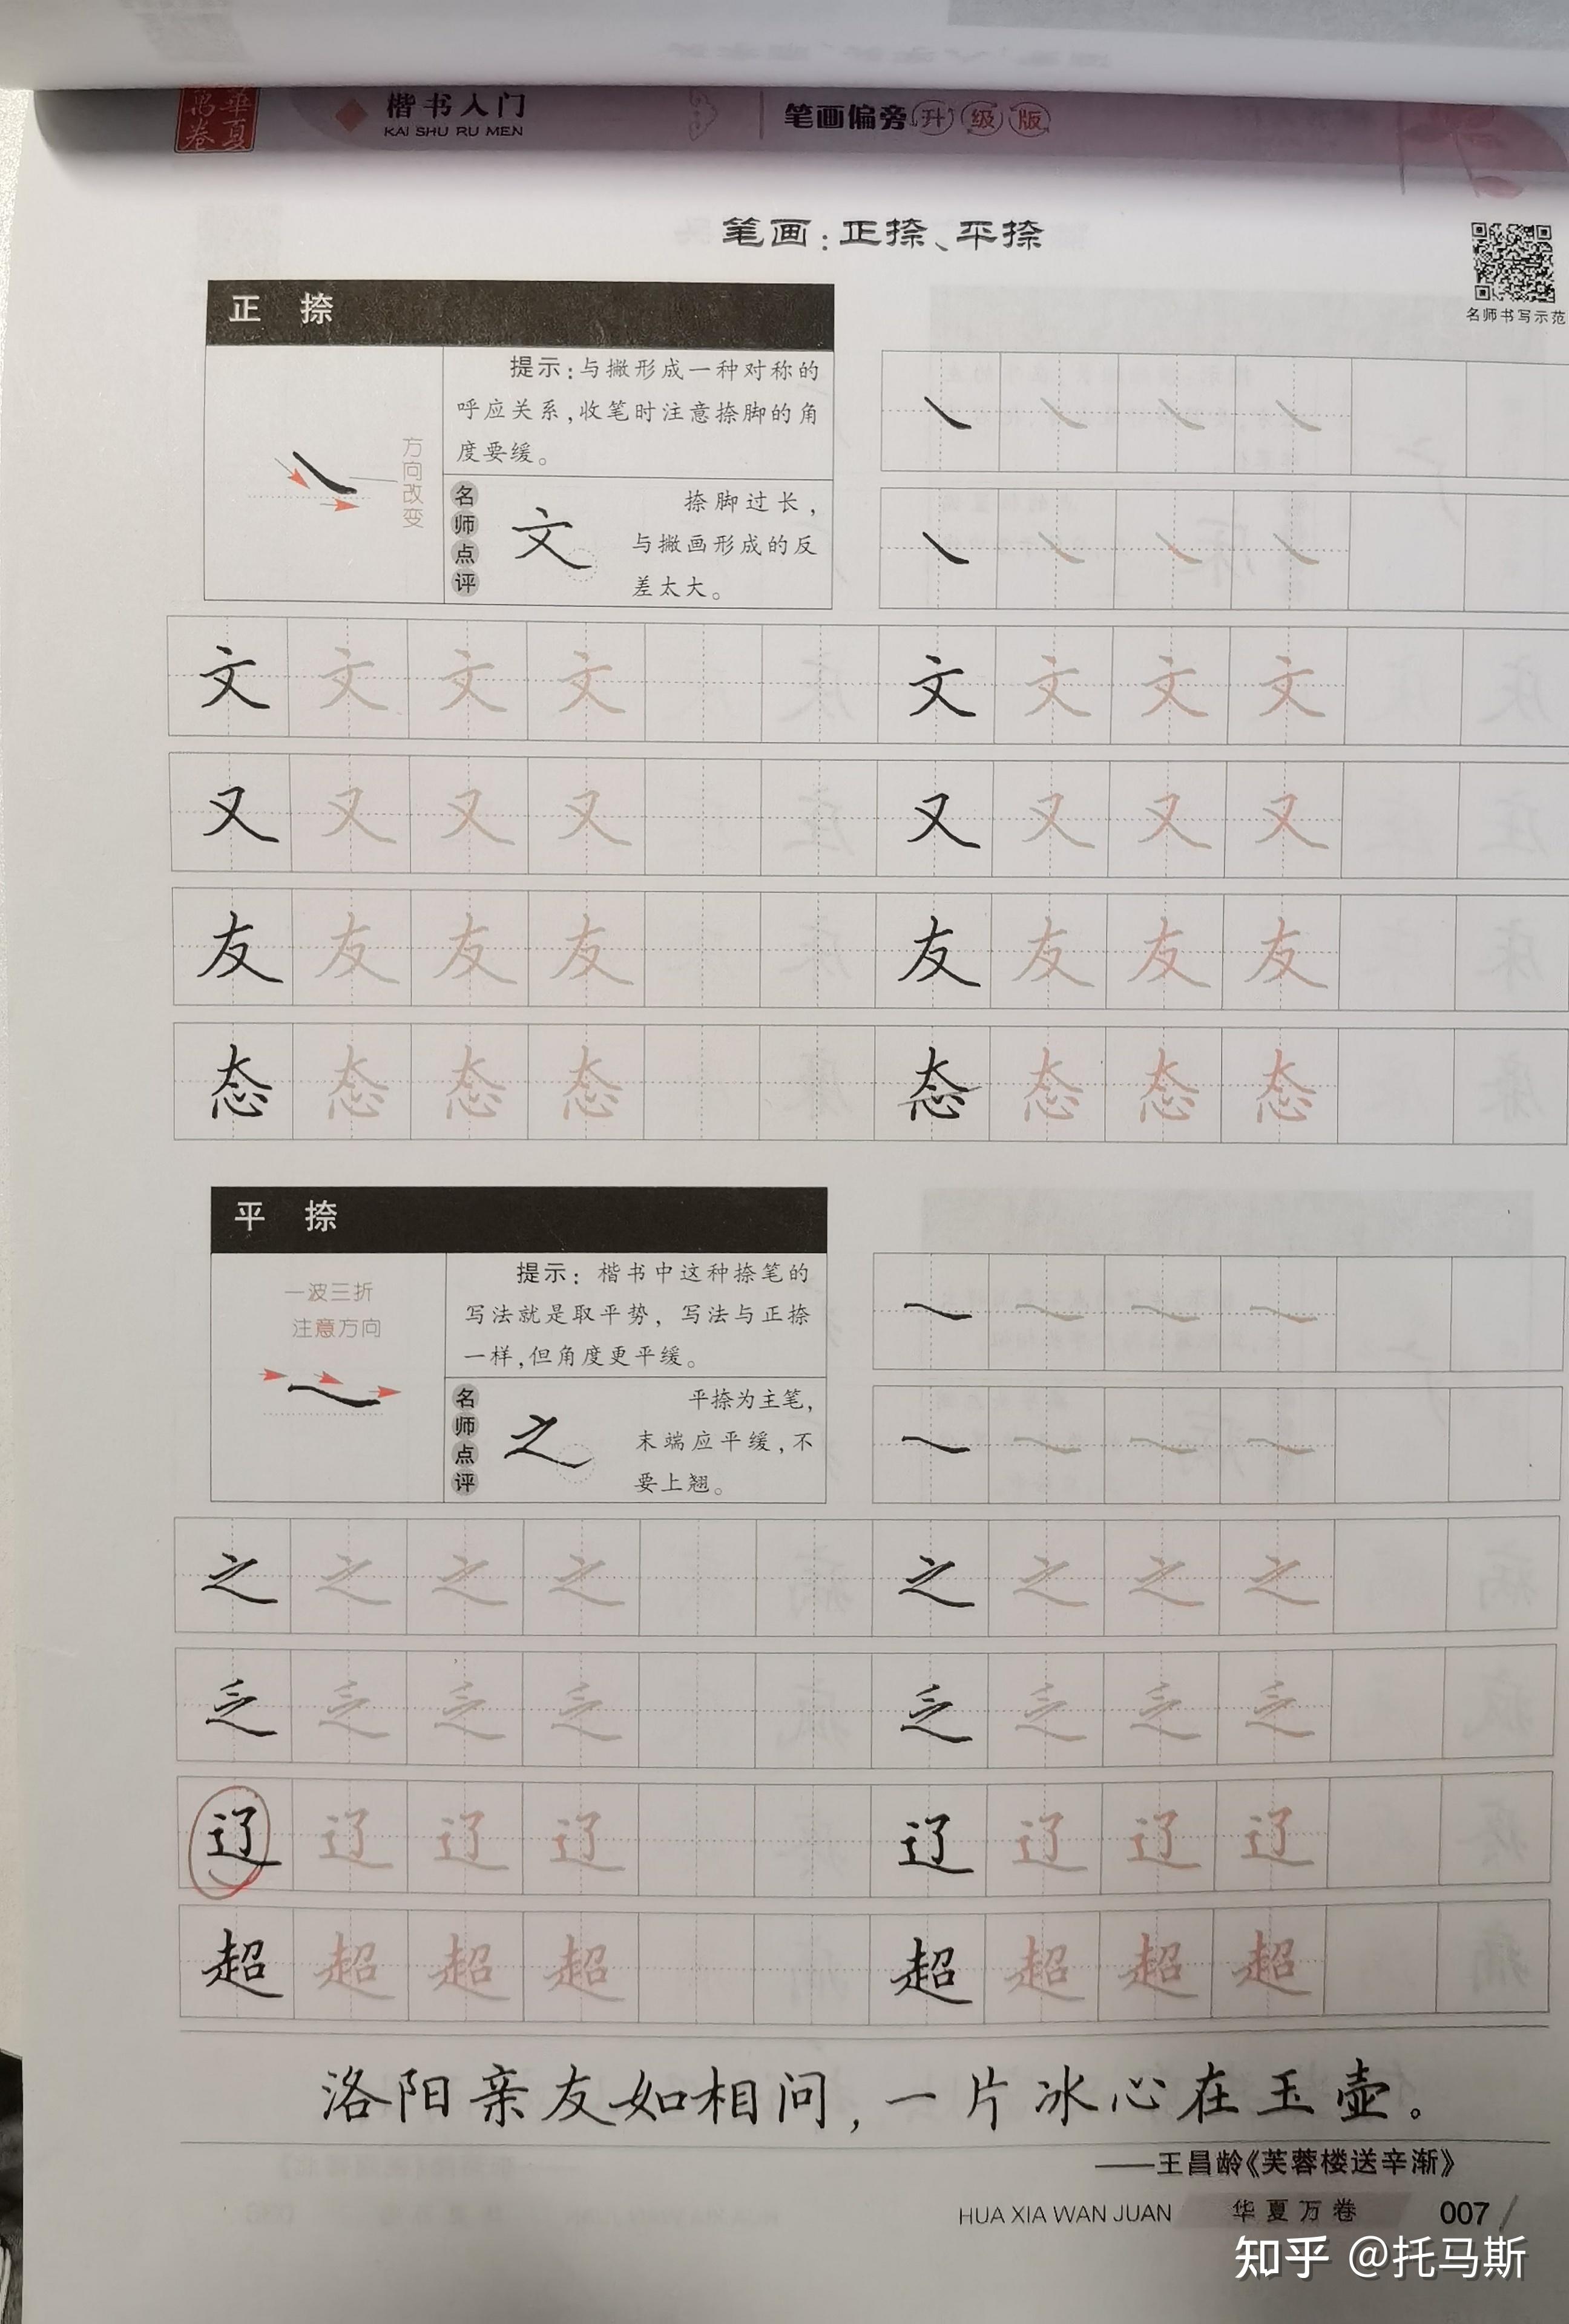 華夏萬卷
楷书入门
KAI SHU RU MEN
笔画偏旁升级版
笔画：正捺、平捺
名师书写示范
正 捺
方向改变
提示：与撇形成一种对称的
呼应关系，收笔时注意捺脚的角
度要缓。
名师点评
文
捺脚过长，
与撇画形成的反
差太大。
文 文 文 文 文 文 文 文
又 又 又 又 又 又 又 又
友 友 友 友 友 友 友 友
态 态 态 态 态 态 态 态
平 捺
一波三折
注意方向
提示：楷书中这种捺笔的
写法就是取平势，写法与正捺
一样，但角度更平缓。
名师点评
之
平捺为主笔，
末端应平缓，不
要上翘。
之 之 之 之 之 之 之 之
乏 乏 乏 乏 乏 乏 乏 乏
辽 辽 辽 辽 辽 辽 辽 辽
超 超 超 超 超 超 超 超
洛阳亲友如相问，一片冰心在玉壶。
——王昌龄《芙蓉楼送辛渐》
HUA XIA WAN JUAN 华夏万卷 007/
知乎 @托马斯